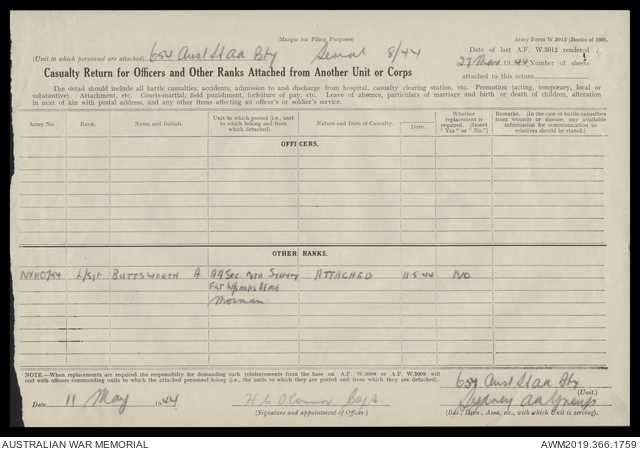 (Margin for Filing Purposes)
Army Form W.3012 (Books of 100).
(Unit to which personnel are attached) 65 Aust Sl aa Bty Serial 8/44
Date of last A.F. W.3012 rendered
27 Mar. 1944 Number of sheets
Casualty Return for Officers and Other Ranks Attached from Another Unit or Corps
attached to this return
The detail should include all battle casualties, accidents, admission to and discharge from hospital, casualty clearing station, etc. Promotion (acting, temporary, local or
substantive). Attachment, etc. Courts-martial, field punishment, forfeiture of pay, etc. Leave of absence, particulars of marriage and birth or death of children, alteration
in next of kin with postal address, and any other items affecting an officer's or soldier's service.
Army No.
Rank.
Name and Initials.
Unit to which posted (i.e., unit
to which belong and from
which detached).
Nature and Date of Casualty.
Date.
Whether
replacement is
required. (Insert
"Yes" or "No.")
Remarks. (In the case of battle casualties
from wounds or disease, any available
information for communication to
relatives should be stated.)
OFFICERS.
OTHER RANKS.
NX110754 L/Sgt. BUTTSWERTH A AA Sec. Nth Sydney ATTACHED 11-5-44 NO
Mosman
NOTE.—When replacements are required the responsibility for demanding such reinforcements from the base on A.F. W.3008 or A.F. W.3009 will
rest with officers commanding units to which the attached personnel belong (i.e., the units to which they are posted and from which they are detached).
65 Aust Sl aa Bty
(Unit.)
Date 11 May 1944
H C O'Connor Capt
Sydney aa Group
(Signature and appointment of Officer.)
(Bde., Divn., Area, etc., with which Unit is serving).
AUSTRALIAN WAR MEMORIAL
AWM2019.366.1759